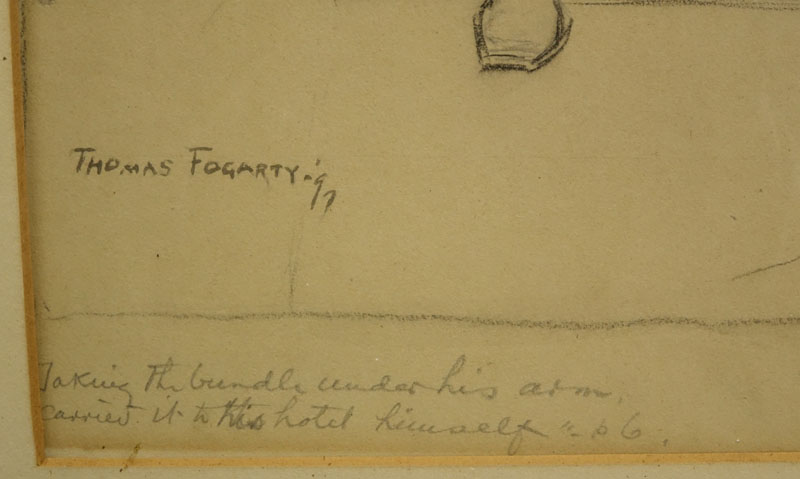 THOMAS FOGARTY-'97
Taking the bundle under his arm,
carried it to his hotel himself" - p 6.